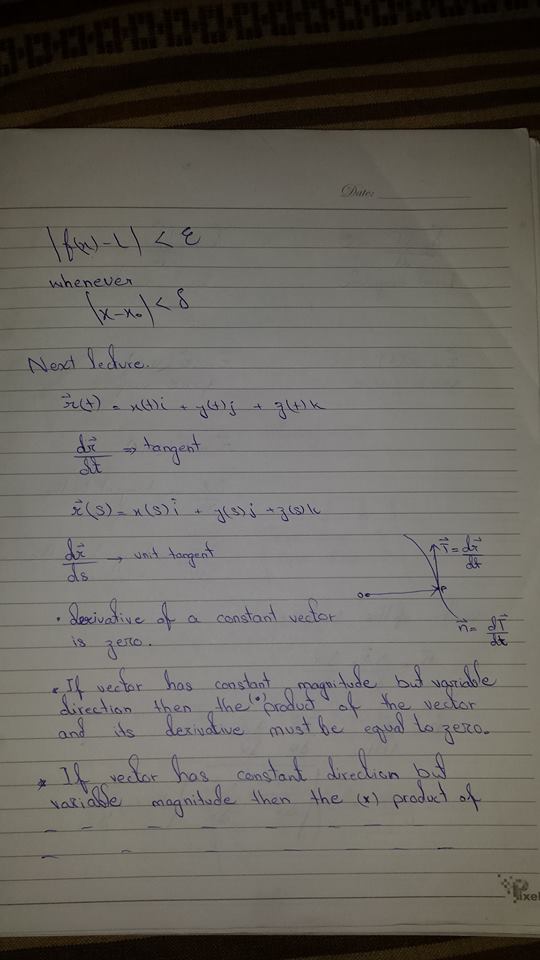 Date:
|f(x)-L| < ε
whenever
|x-x₀| < δ
Next lecture.
r⃗(t) = x(t)i + y(t)j + z(t)k
dr⃗/dt ⇒ tangent
r⃗(s) = x(s)i + y(s)j + z(s)k
dr⃗/ds → unit tangent
T⃗ = dr⃗/dt
P
n⃗ = dT⃗/dt
• derivative of a constant vector
is zero.
• If vector has constant magnitude but variable
direction then the (•) product of the vector
and its derivative must be equal to zero.
* If vector has constant direction but
variable magnitude then the (x) product of
Pixel